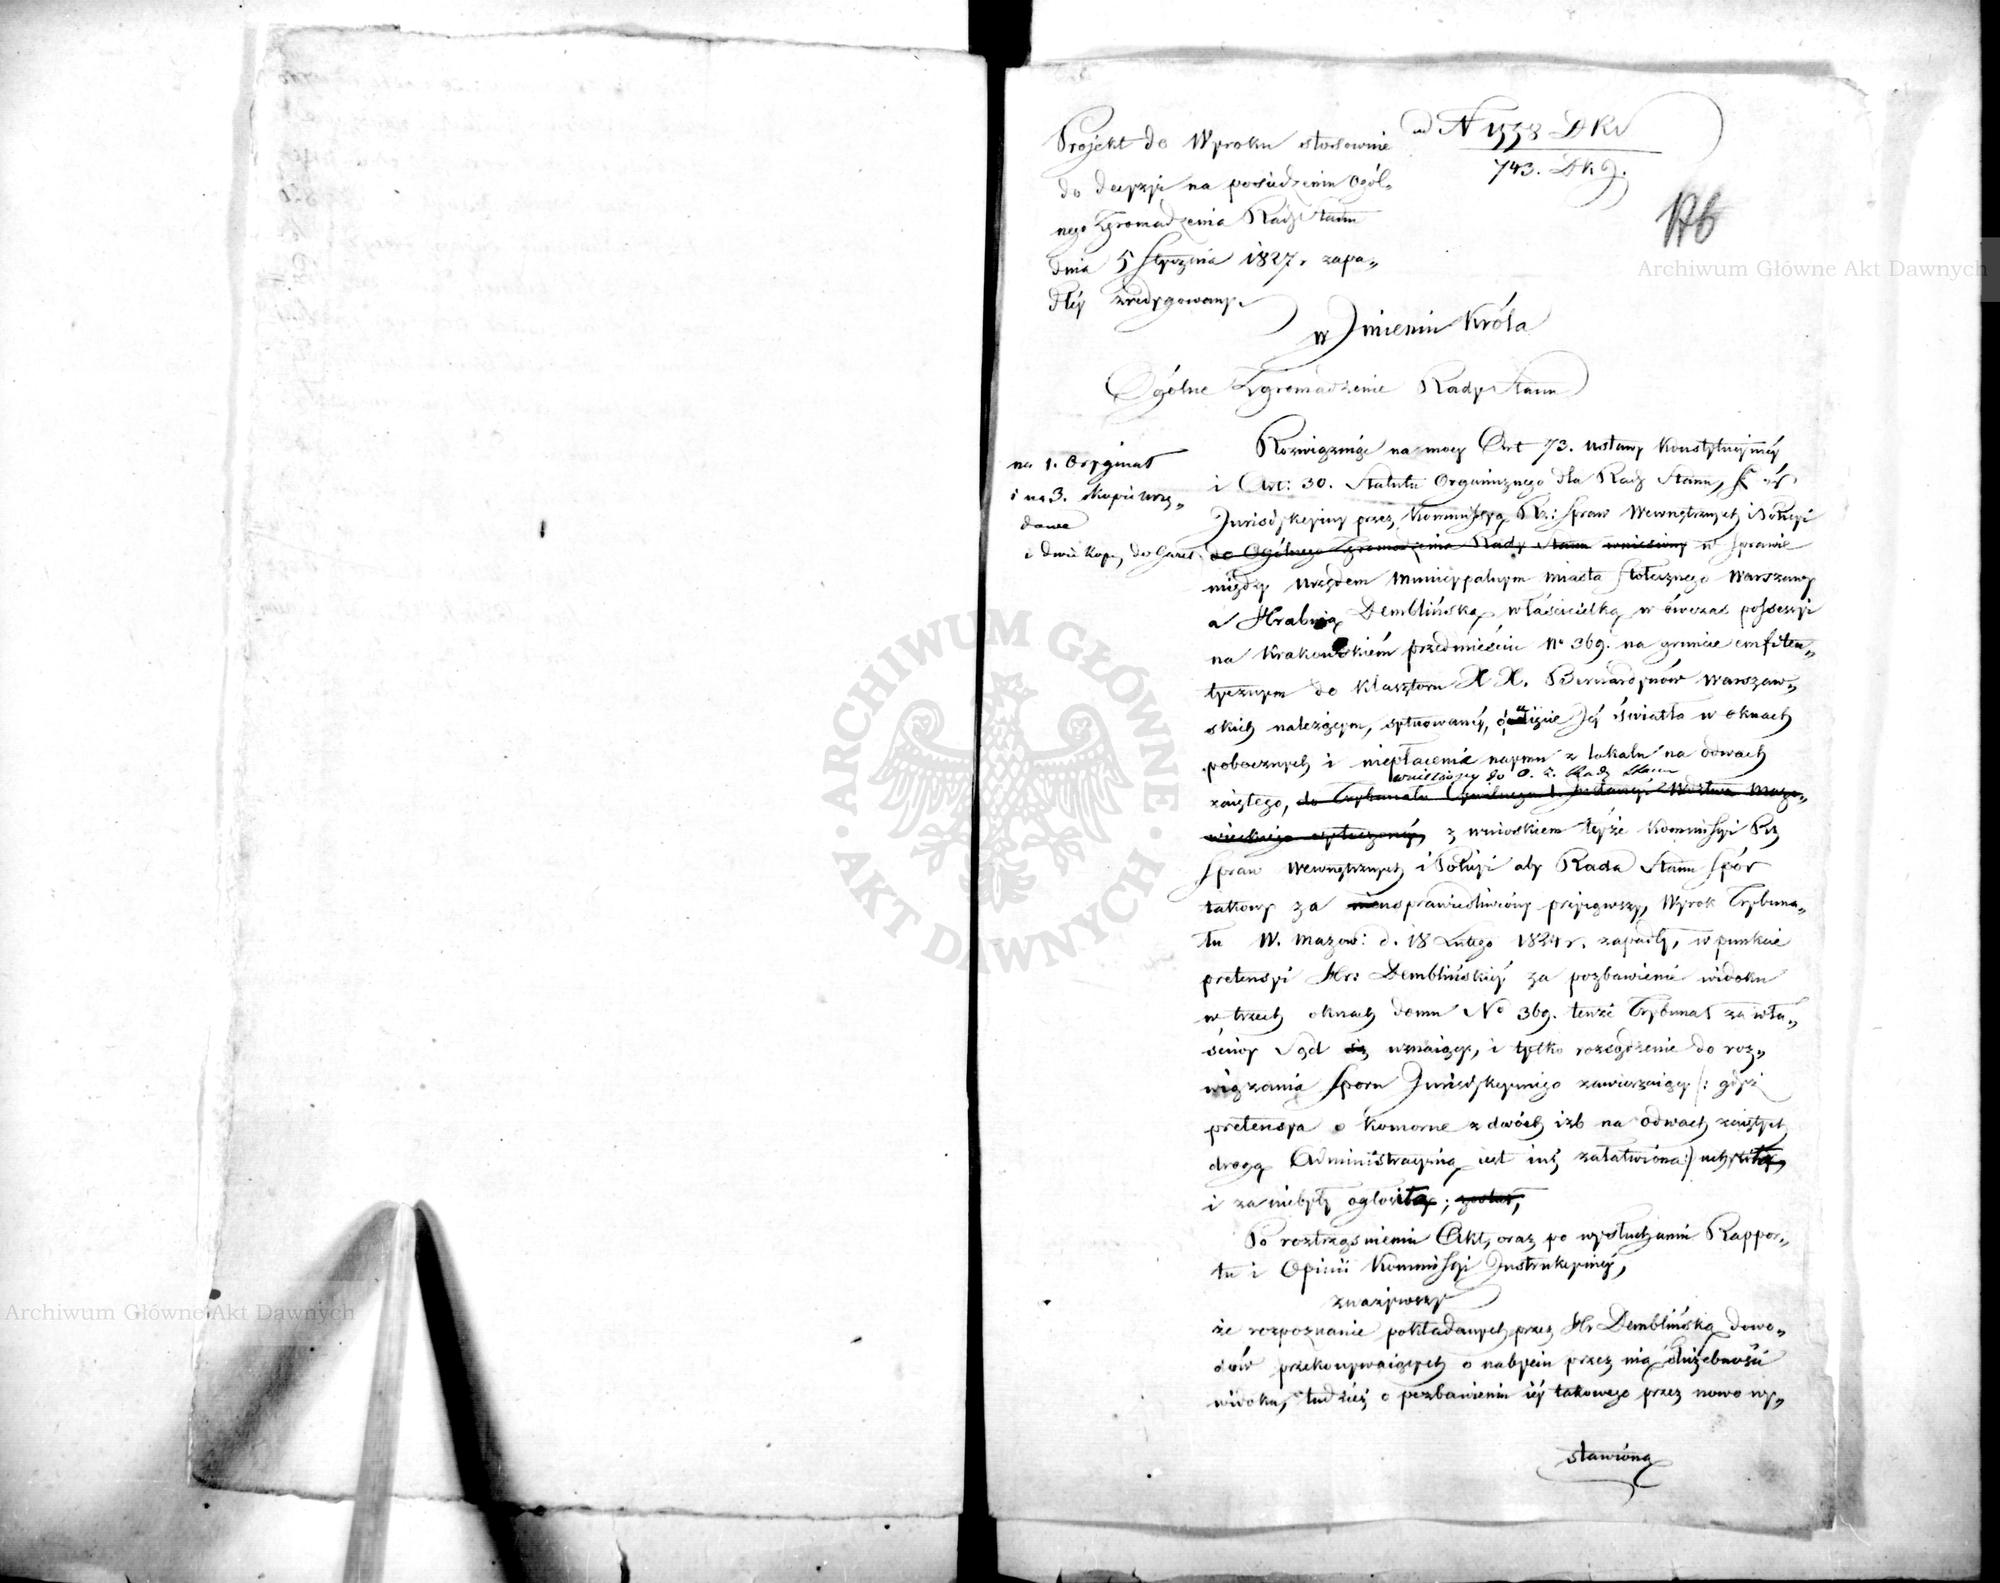 Projekt do Wyroku stosownie
do decyzji na posiedzeniu Ogól„
nego Zgromadzenia Rady Stanu
dnia 5 Stycznia 1827. zapa„
dłéy zredygowany.
ad N 1558 DKi
743. DkJ.
Archiwum Główne Akt Dawnych
w Jmieniu Króla
Ogólne Zgromadzenie Rady Stanu
na 1. Oryginał
i na 3. Kopie urzę„
dowe
i dwie kopij do Gazet.
Rozwiązuiąc na mocy Art 73. ustawy Konstytucyinéy
i Art: 30. Statutu Organicznego dla Rady Stanu, Spór
Jurisdykcyiny przez Kommissyą Rz: Spraw Wewnętrznych i Policyi
do Ogólnego Zgromadzenia Rady Stanu wniesiony w sprawie
między Urzędem Municypalnym Miasta Stołecznego Warszawy
a Hrabiną Demblińską, właścicielką w ówczas possessyi
na Krakowskiém przedmieściu No 369. na gruncie emfiteu„
tycznym do Klasztoru X X. Bernardynów Warszaw„
skich należącym, sytuowanéy, o ięcie Jéy światła w oknach
pobocznych i niepłacenie naymu z lokalu na odwach
wniesiony do O. Z. Rady Stanu
zaiętego, do Trybunału Cywilnego I. Instancyi Wdztwa Mazo„
wieckiego wytoczonéy, z wnioskiem téyże Kommissyi Rz
Spraw Wewnętrznych i Policyi aby Rada Stanu Spór
takowy za usprawiedliwiony przyiąwszy, Wyrok Trybuna„
łu W. Mazow: d. 18 Lutego 1824 r. zapadły, w punkcie
pretensyi Hr: Demblińskiéy za pozbawienie widoku
w trzech oknach domu No 369. tenże Trybunał za wła„
ściwy Sąd się uznaiący, i tylko rozsądzenie do roz„
wiązania Sporu Jurisdykcyinego zawieszaiący /: gdyż
pretensya o komorne z dwóch izb na odwach zaiętych
drogą Administracyiną iest iuż załatwiona:/ uchyliła,
i za niebyły ogłosiła; został,
Po roztrząśnieniu Akt, oraz po wysłuchaniu Rappor„
tu i Opinii Kommissyi Instrukcyinéy,
zważywszy
że rozpoznanie pokładanych przez Hr Demblińską dowo„
dów przekonywaiących o nabyciu przez nią służebności
widoku, tudzież o pozbawieniu iéy takowego przez nowo wy„
stawioną
ARCHIWUM GŁÓWNE
· AKT DAWNYCH ·
Archiwum Główne Akt Dawnych